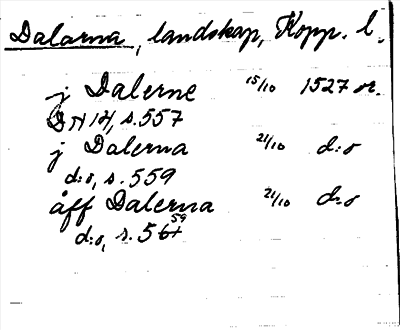 Dalarna, landskap, Kopp. l.
j Dalerne 15/10 1527 or.
DN 14, s. 557
j Dalerna 21/10 d:o
d:o, s. 559
åff Dalerna 21/10 d:o
d:o, s. 559